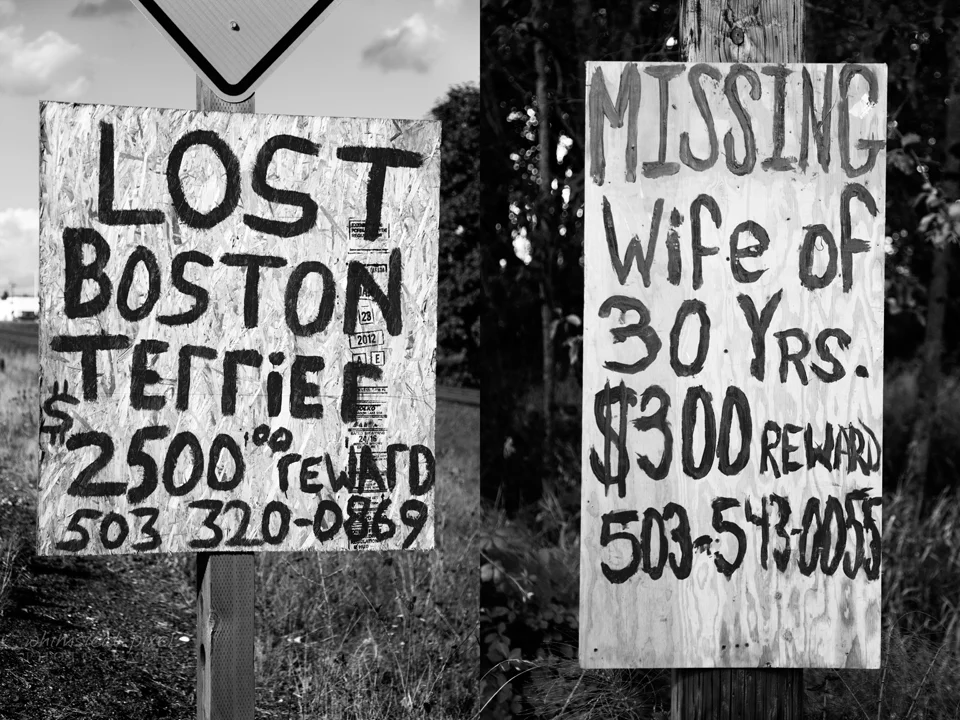 LOST
BOSTON
TErriEr
$2500.00 rEWArD
503 320-0869
MISSING
Wife of
30 YRS.
$300 REWARD
503-543-0055
28
2012
A E